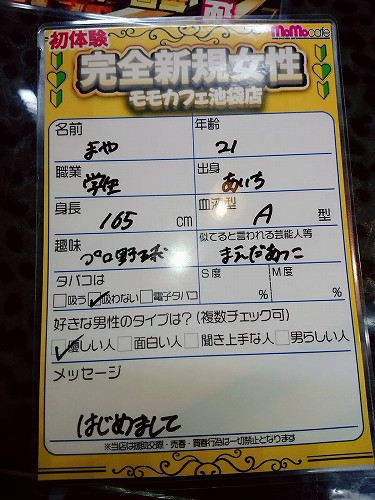 初体験
MoMocafe
完全新規女性
モモカフェ池袋店
名前 年齢
まや 21
職業 出身
学生 あいち
身長 血液型
165 cm A 型
趣味 似てると言われる芸能人等
プロ野球 まえだあつこ
タバコは S度 M度
吸う 吸わない 電子タバコ % %
好きな男性のタイプは?(複数チェック可)
優しい人 面白い人 聞き上手な人 男らしい人
メッセージ
はじめまして
※当店は援助交際・売春・買春行為は一切禁止となります